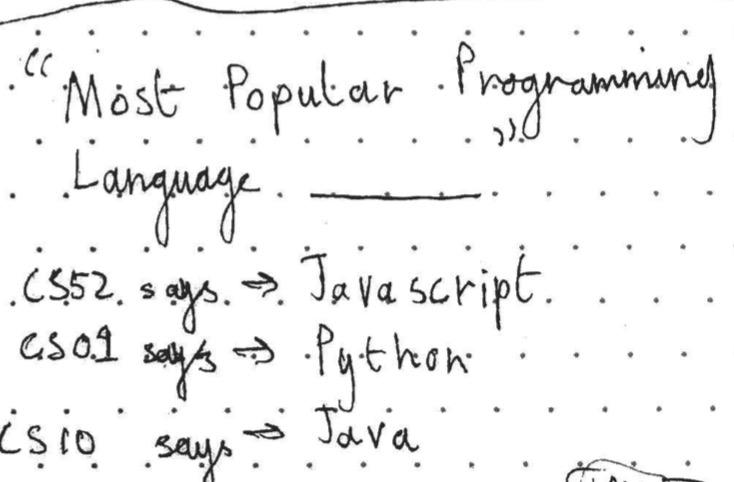 “Most Popular Programming
Language ______”
CS52 says → Javascript.
CS01 says → Python
CS10 says → Java